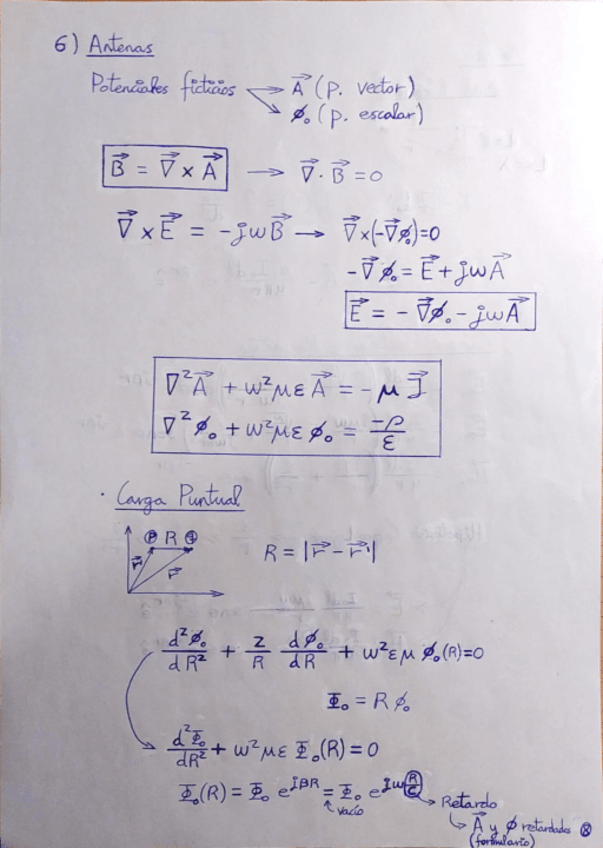 6) Antenas
Potenciales ficticios → A⃗ (p. vector)
↘ ϕ₀ (p. escalar)
B⃗ = ∇⃗ × A⃗ → ∇⃗ · B⃗ = 0
∇⃗ × E⃗ = -jωB⃗ → ∇⃗×(-∇⃗ϕ₀)=0
-∇⃗ϕ₀ = E⃗ + jωA⃗
E⃗ = - ∇⃗ϕ₀ - jωA⃗
∇²A⃗ + ω²με A⃗ = -μ J⃗
∇²ϕ₀ + ω²με ϕ₀ = -ρ/ε
· Carga Puntual
P R Q
r⃗' r⃗
R = |r⃗ - r⃗'|
d²ϕ₀/dR² + 2/R dϕ₀/dR + ω²εμ ϕ₀(R)=0
Φ₀ = R ϕ₀
d²Φ₀/dR² + ω²με Φ₀(R) = 0
Φ₀(R) = Φ₀ e^{jβR} = Φ₀ e^{jω R/c} → Retardo
↑ vacío
↳ A⃗ y ϕ retardados ⊗
(formulario)